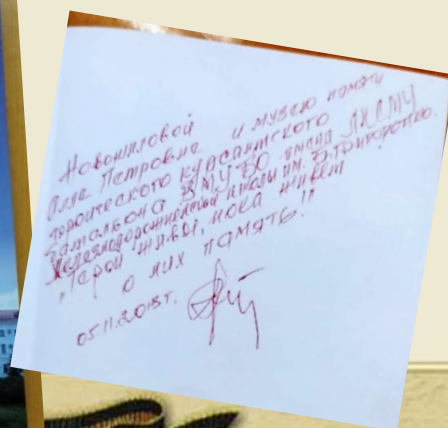 Новожиловой
Алле Петровне и музею памяти
героического курсантского
батальона ВМУБО имени ЛКСМУ
Железнодорожненской школы им. Б. Григоренко.
"Герои живы, пока живёт
о них память!"
05.11.2018г.